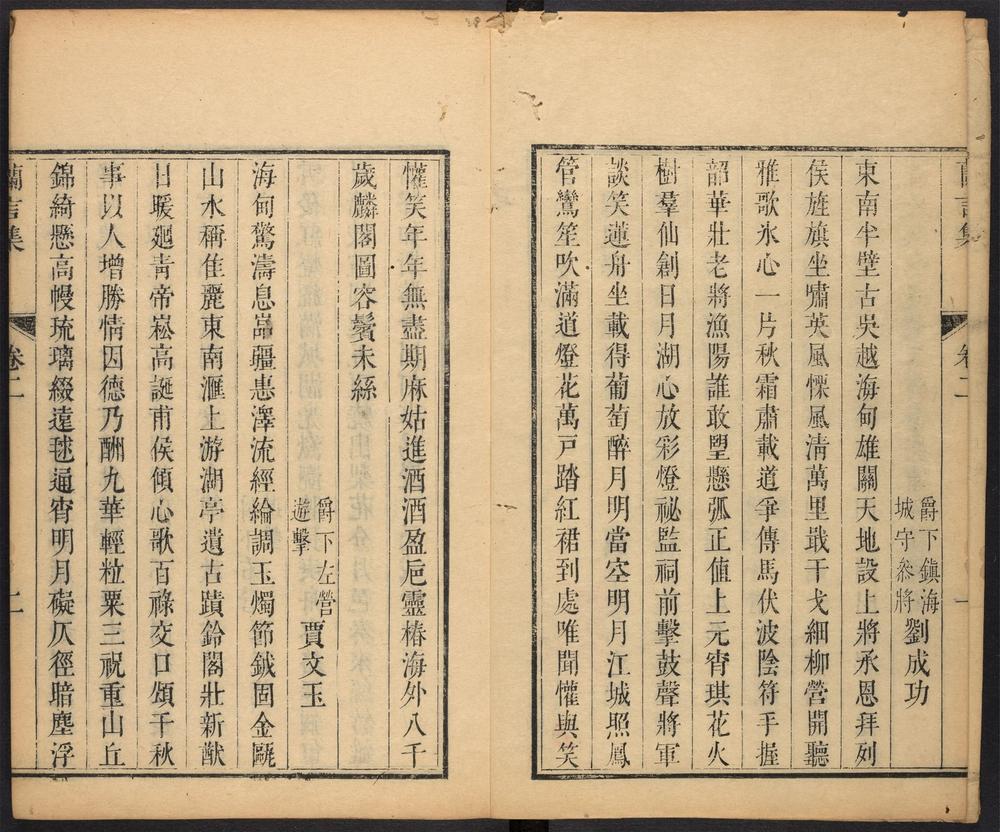 蘭言集 卷二 一
爵下鎮海
城守叅將
劉成功
東南半壁古吳越海甸雄關天地設上將承恩拜列
侯旌旗坐嘯英風慄風淸萬里戢干戈細柳營開聽
雅歌氷心一片秋霜肅載道爭傳馬伏波陰符手握
韶華壯老將漁陽誰敢朢懸弧正值上元宵琪花火
樹羣仙創日月湖心放彩燈祕監祠前擊鼓聲將軍
談笑蓮舟坐載得葡萄醉月明當空明月江城照鳳
管鸞笙吹滿道燈花萬戸踏紅裙到處唯聞懽與笑
懽笑年年無盡期麻姑進酒酒盈巵靈椿海外八千
歲麟閣圖容鬢未絲
爵下左營
遊擊
賈文玉
海甸驚濤息嵓疆惠澤流經綸調玉燭節鉞固金甌
山水稱佳麗東南滙上游湖亭遺古蹟鈴閣壯新猷
日暖廻靑帝崧高誕甫侯傾心歌百祿交口頌千秋
事以人增勝情因德乃酬九華輕粒粟三祝重山丘
錦綺懸高幔琉璃綴遠毬通宵明月礙仄徑暗塵浮
蘭言集 卷二 二